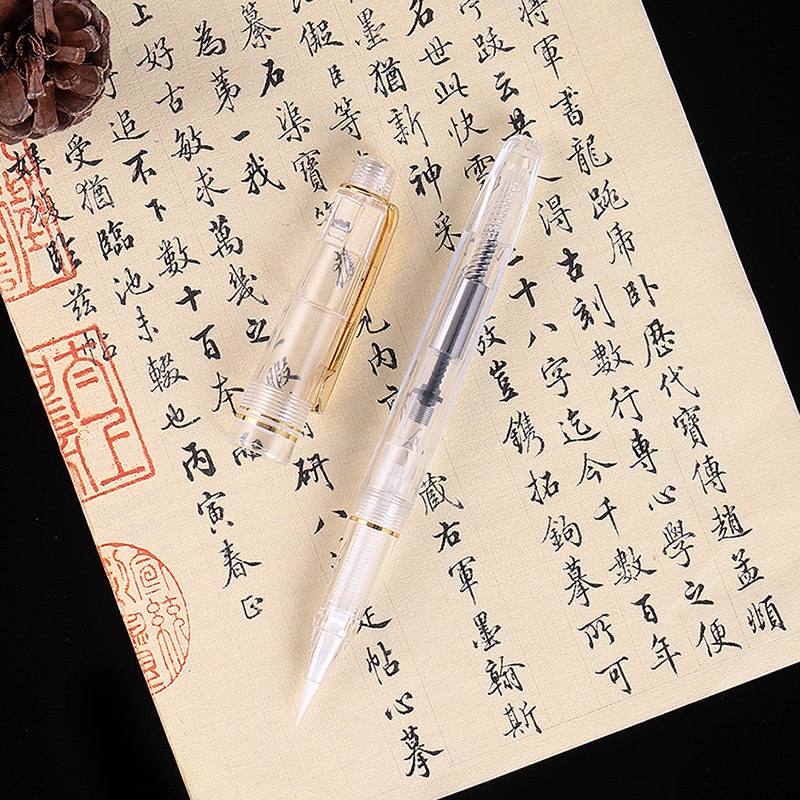 將軍書龍跳虎卧歷代寶傳趙孟頫
跋云人得古刻數行專心學之便
名世此快雪二十八字迄今千數百年
墨猶新神采攷豈鐫拓鉤摹所可
臣等
摹石渠寶元內藏右軍墨翰斯
為第一我
上好古敏求萬幾之暇研帖心摹
追不下數十百本而
受猶臨池未輟也丙寅春正
娛復臨茲帖